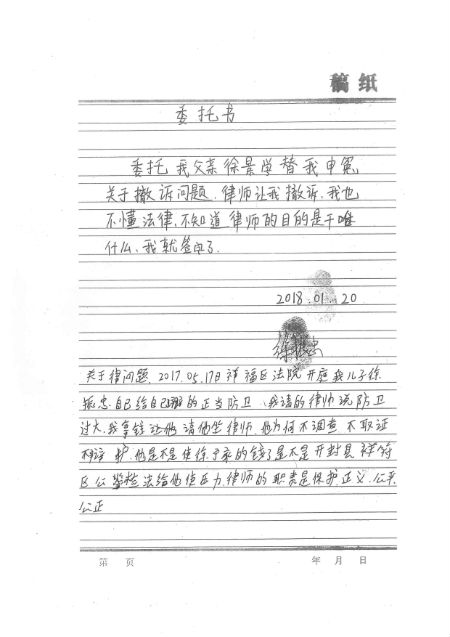 稿纸
委托书
委托我父亲徐景学替我申冤
关于撤诉问题.律师让我撤诉.我也
不懂法律,不知道律师的目的是干
什么,我就签字了.
2018.01.20
徐振忠
关于律问题.2017.05.17日祥福区法院开庭我儿子徐
振忠自己给自己辩的正当防卫,我请的律师说防卫
过大,我拿钱让他请他坐律师,他为何不调查不取证
不辩护,他是不是使徐家的钱了是不是开封县祥符
区公 检法给他压力律师的职责是保护正义,公平
公正
第 页 年 月 日